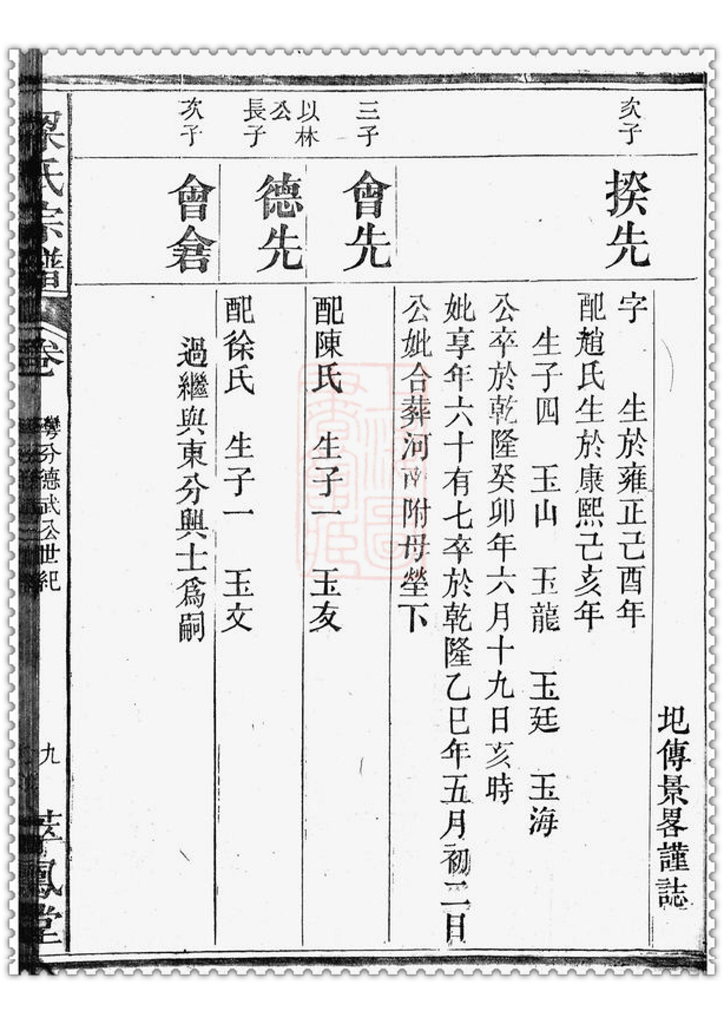 圯傳景畧謹誌
次子
揆先
字 生於雍正己酉年
配趙氏生於康熙己亥年
生子四 玉山 玉龍 玉廷 玉海
公卒於乾隆癸卯年六月十九日亥時
妣享年六十有七卒於乾隆乙巳年五月初二日
公妣合葬河南附母塋下
三子
會先
配陳氏 生子一 玉友
以林
公
長子
德先
配徐氏 生子一 玉文
次子
會
過繼與東分興士為嗣
梁氏宗譜
卷
分德武公世紀
九
鳳堂